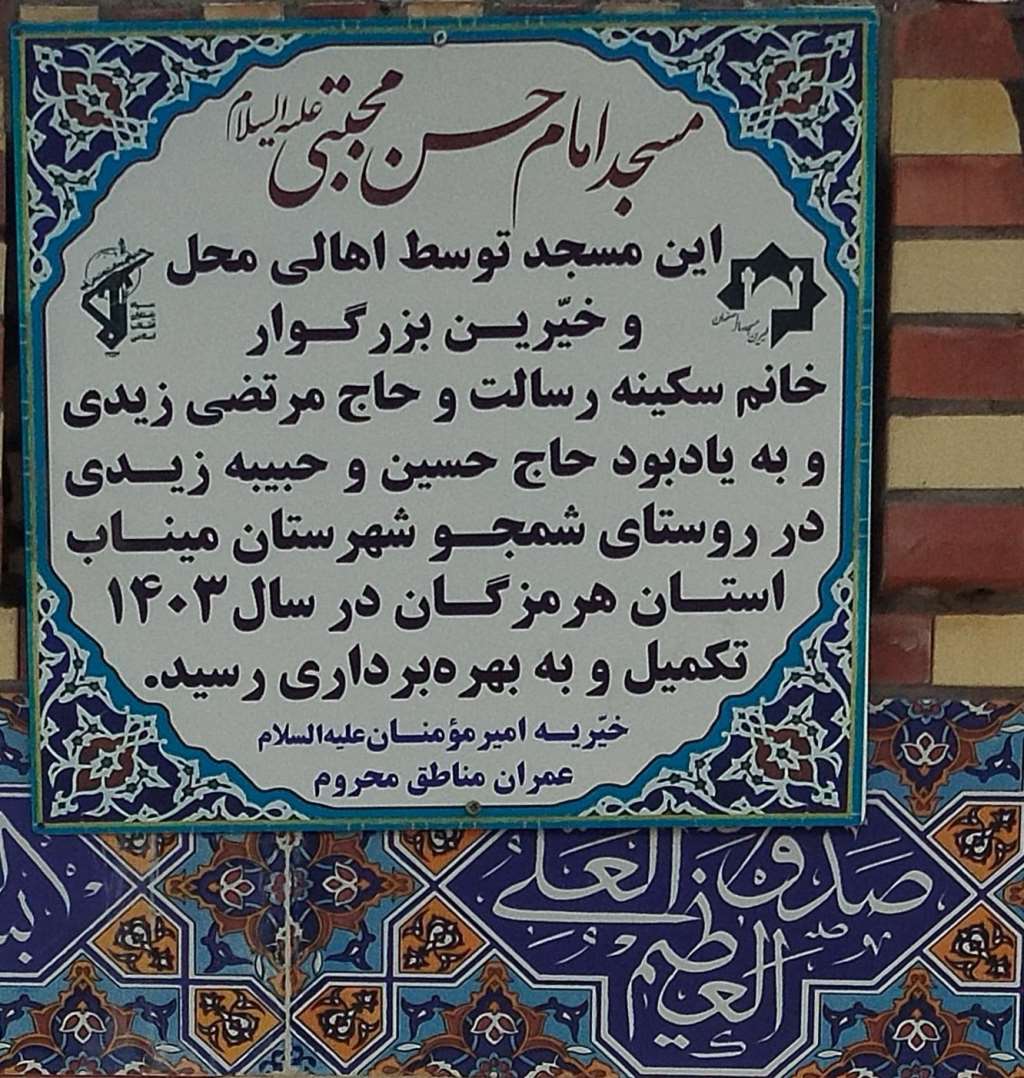 مسجد امام حسن مجتبی علیه السلام
این مسجد توسط اهالی محل
و خیّرین بزرگوار
خانم سکینه رسالت و حاج مرتضی زیدی
و به یادبود حاج حسین و حبیبه زیدی
در روستای شمجو شهرستان میناب
استان هرمزگان در سال ۱۴۰۳
تکمیل و به بهره‌برداری رسید.
خیّریه امیرمؤمنان علیه‌السلام
عمران مناطق محروم
صدق العلی
العظیم